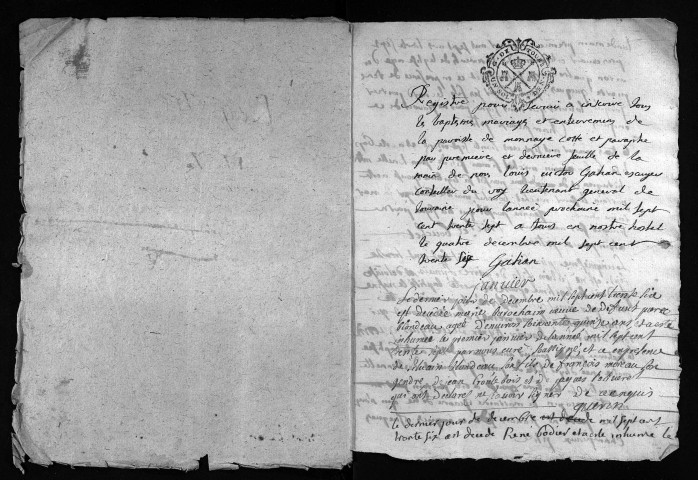 Registre pour servir a inscrire tous
les baptesmes mariages et enterremens de
la parroisse de monnaye cotté et paraphé
par premiere et derniere feuille de la
main de nous Louis victor Gahan escuyer
conseiller du roy lieutenant general de
touraine pour l'année prochaine mil sept
cent trente sept a tours en nostre hostel
le quatre decembre mil sept cent
trente six Gahan
janvier
Le dernier jour de decembre mil sept cent trente six
est decedée marie parochain veuve de defunt
blondeau aagée d'environ soixante quinze ans et a esté
inhumée le premier janvier de l'année mil sept cent
trente sept par nous curé soussigné, et ce en presence
de blondeau son fils de françois moreau son
gendre de jean
qui ont declaré ne savoir signer de ce enquis
gueron
Le dernier jour de decembre mil sept cent
trente six est decedé René Godier et a esté inhumé le